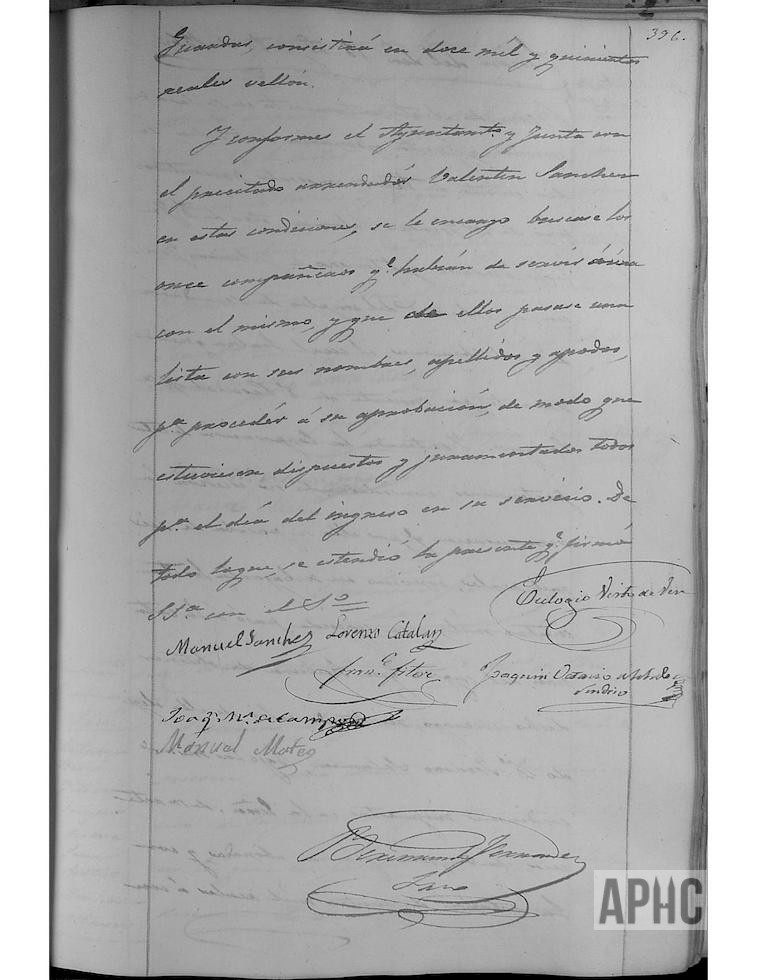 396.
Guardas, consistirá en doce mil y quinientos
reales vellón.
Y conformes el Ayuntamto. y Junta con
el precitado arrendador Valentin Sanchez
en estas condiciones, se le encargo buscase los
once compañeros qe. habian de servir
con el mismo, y que de ellos pasase una
lista con sus nombres, apellidos y apodos,
pa. proceder á su aprobación, de modo que
estuviesen dispuestos y juramentados todos
pa. el día del ingreso en su servicio. De
todo lo que se estendió la presente qe. firmó
SSa. con el Sº
Eulogio Virto de Vera
Manuel Sanchez Lorenzo Catalan
Joaquin
Sindico
Joaqn. Ma. de Campos
Manuel Mateo
Fernandez